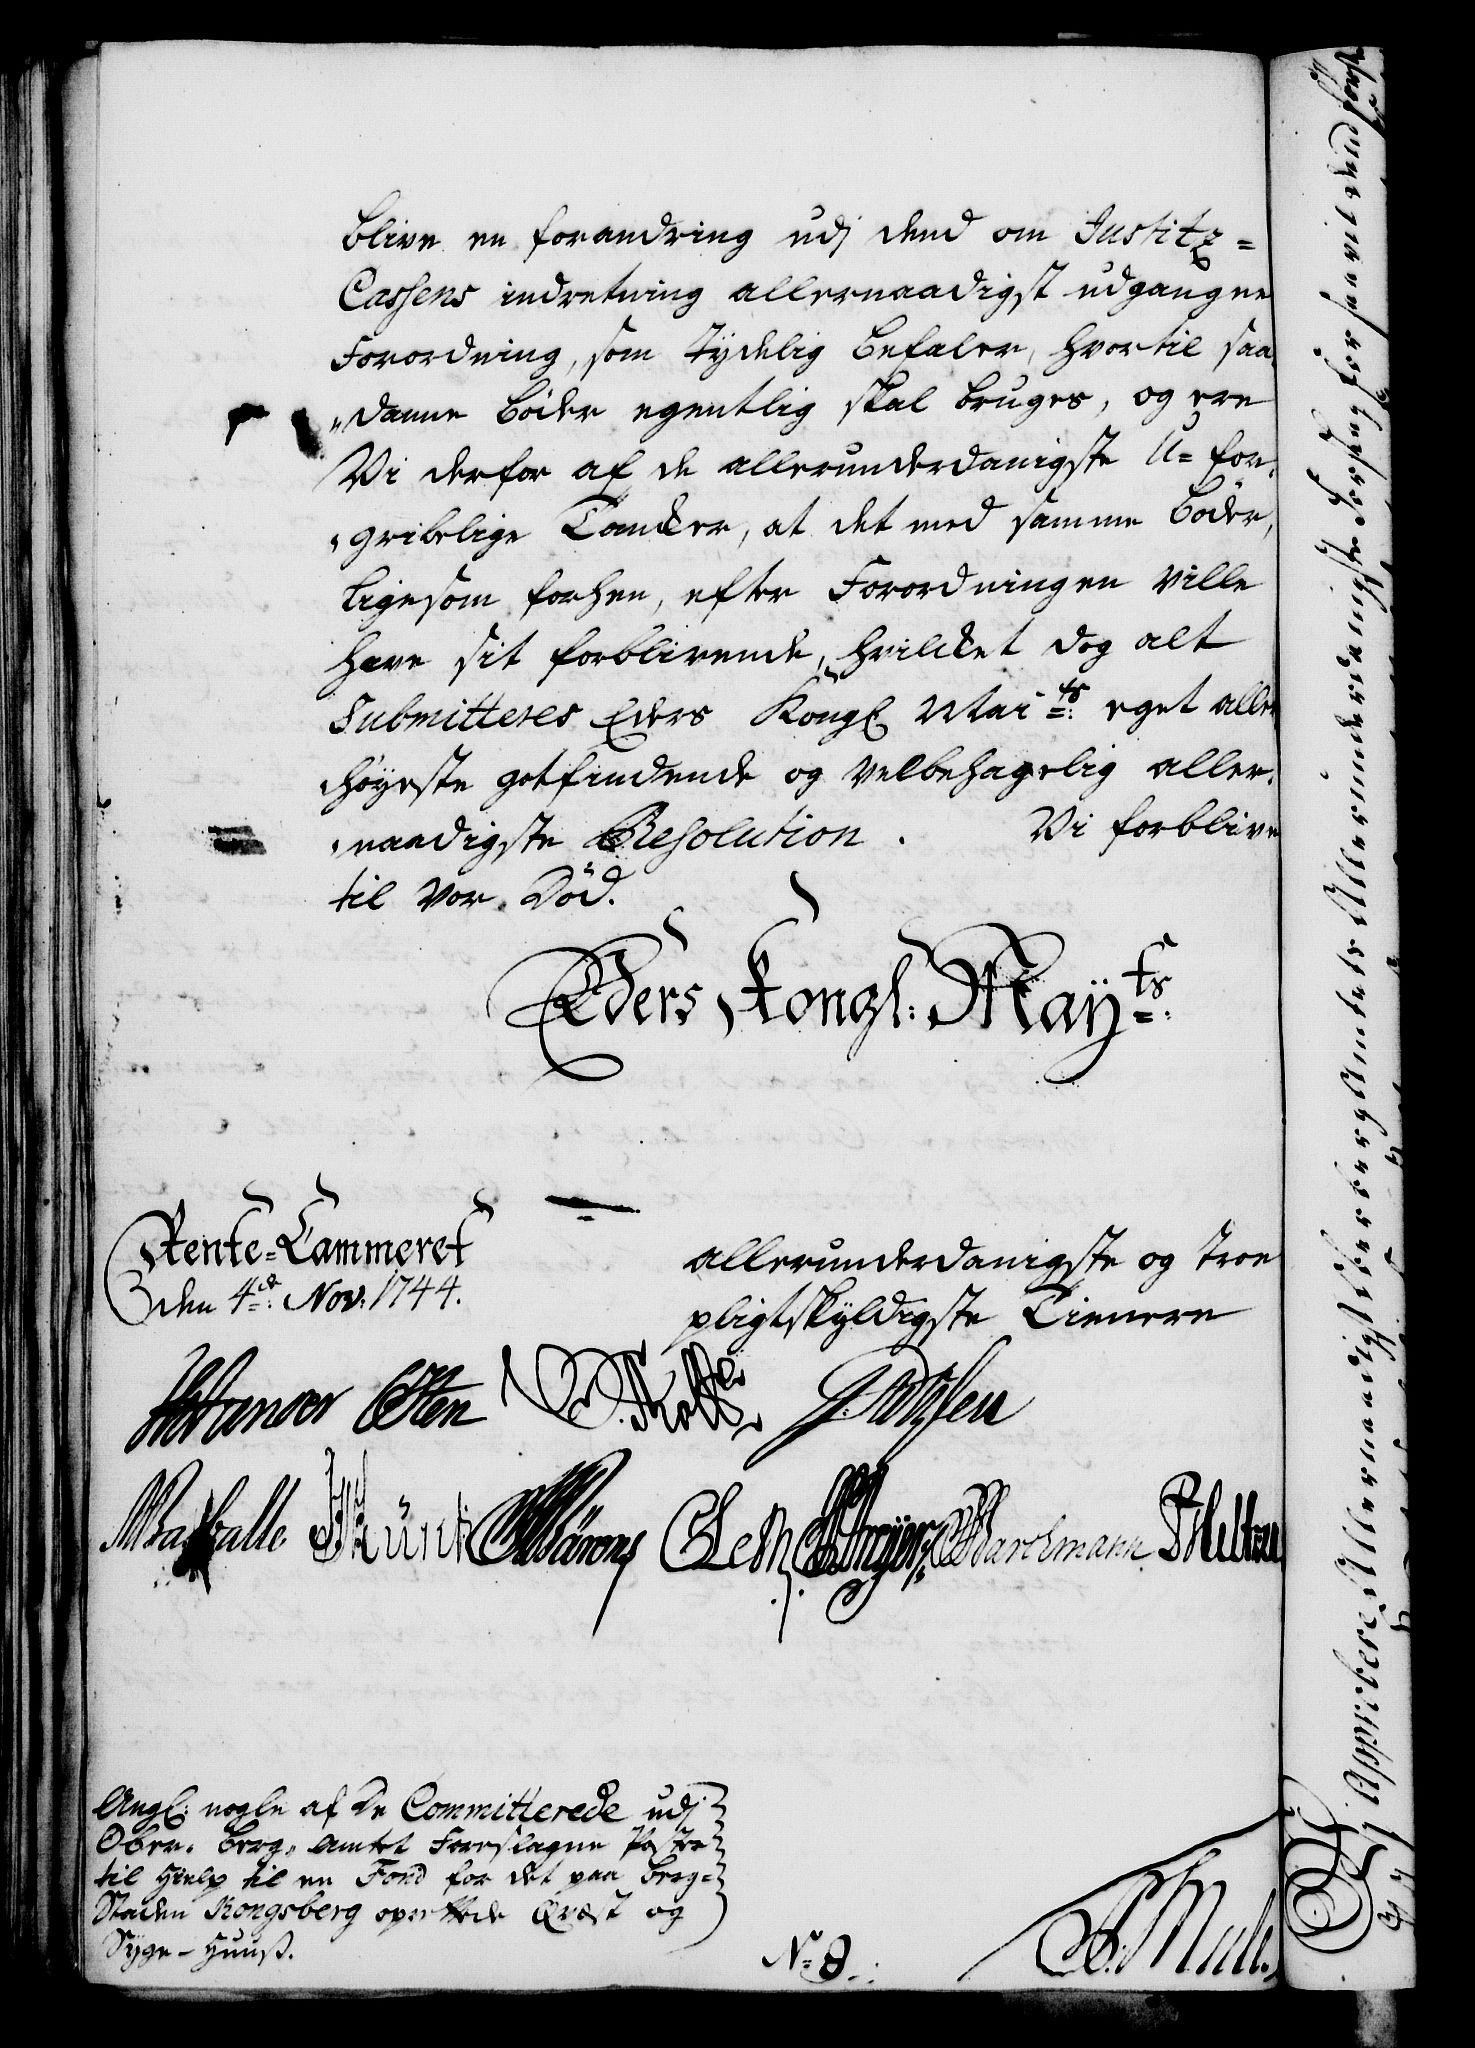 blive en forandring udj dend om Justitz=
Cassens indretning allernaadigst udgangne
Forordning, som tÿdelig befaler, hvortil saa
danne bøder egentlig skal bruges, og ere
Vi derfor af de allerunderdanigste U= for,
gribelige Tancker, at det med samme bøder,
ligesom forhen, efter Forordningen ville
have sit forblivende, hvilcket dog alt
Submitteres Eders Kongl Mai=ts: eget aller
høyeste gotfindende og velbehagelig aller,
naadigste Resolution. Vi forblive
til vor Död.
Eders Kongl: Maÿ=ts:
Rente=Cammeret
den 4=de: Nov: 1744.
allerunderdanigste og troe
pligtskÿldigste Tienere
Angl: nogle af De Committerede udj
Ober-berg-Amtet Foreslagne Poster
til Hielp til en Fond for det paa berg=
Staden Kongsberg oprettede Qvæst og
Sÿge-Huuß.
No 8.
Vj Approbere Allernaadigst Ober berg Amtets Allerunderdanigste Forslag for saavit dend første